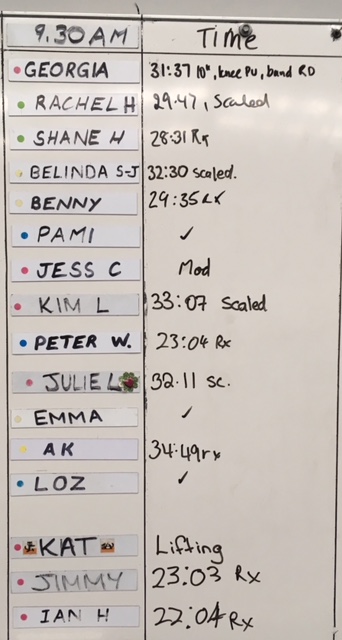 9.30 AM Time
GEORGIA 31:37 10", knee PU, band RD
RACHEL H 29:47, Scaled
SHANE H 28:31 Rx
BELINDA S-J 32:30 scaled.
BENNY 29:35 RX
PAMI ✓
JESS C Mod
KIM L 33:07 Scaled
PETER W. 23:04 Rx
JULIE L 32.11 sc.
EMMA ✓
AK 34:49 rx
LOZ ✓
KAT Lifting
JIMMY 23:03 Rx
IAN H 22:04 Rx